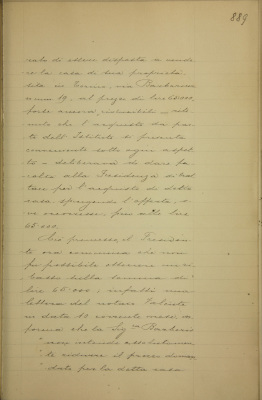 889
rato di essere disposta a vende
re la casa di sua proprietà
sita in Torino, via
numº 19, al prezzo di lire
forse ancora riducibile - rite
nuto che l'acquisto da par
te dell'Istituto si presenta
conveniente sotto ogni aspet
to - deliberava di dare fa
coltà alla Presidenza di trat
tare per l'acquisto di detta
casa spingendo l'offerta, o
ve occorresse, fino alle lire
65.000.
Ciò premesso, il Presiden
te ora comunica che non
fu possibile ottenere un ri
basso nella somma di
lire 65.000, infatti una
lettera del notaio
in data 10 corrente mese, in
forma che la Sigra
"non intende assolutamen
"te ridurre il prezzo doman
"dato per la detta casa